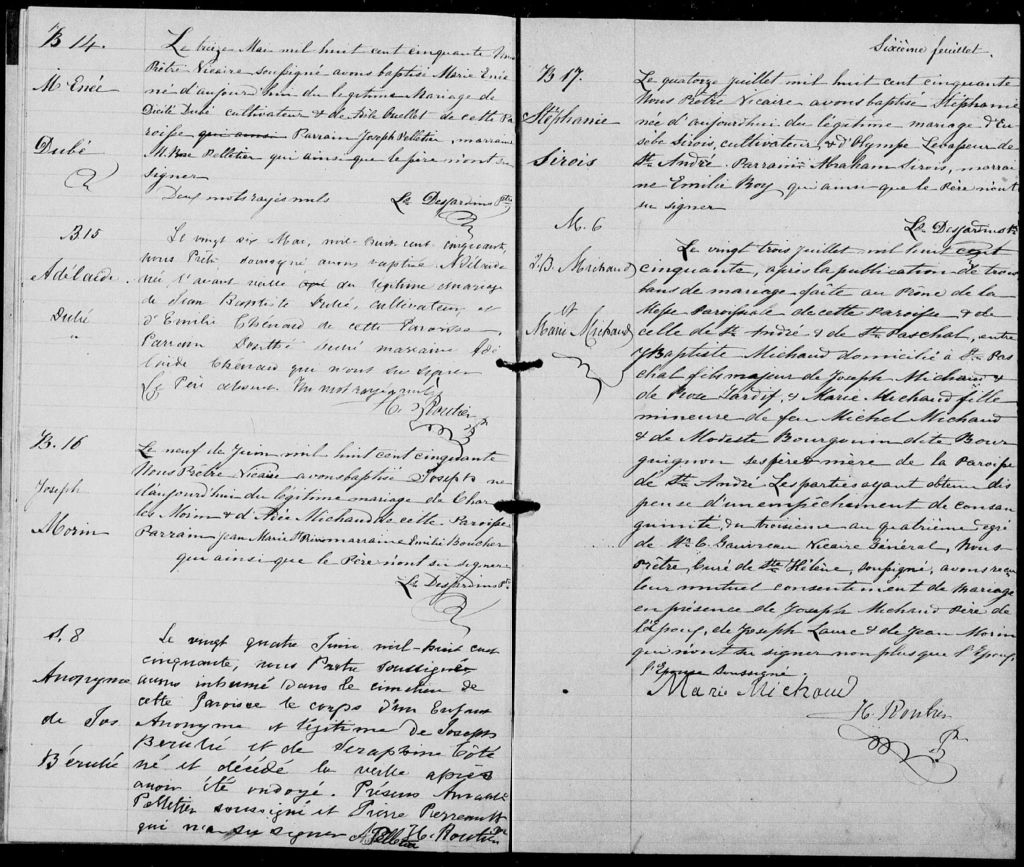 B 14.
M Enée
Dubé
Le treize Mai mil huit cent cinquante Nous
Prêtre Vicaire soussigné avons baptisé Marie Enée
né d'aujourd'hui du légitime Mariage de
Dubé cultivateur & de Ouellet de cette Pa
roisse qui ainsi Parrain Joseph Pelletier, marraine
M. Rose Pelletier qui ainsi que le père n'ont su
signer
Deux mots rayés nuls Ls Desjardins Ptre
B 15
Adélaïde
Dubé
Le vingt six Mai, mil-huit cent cinquante,
nous Prêt. soussigné avons baptisé Adélaïde
née l'avant veille du légitime mariage
de Jean Baptiste Dubé, cultivateur, et
d'Emilie Chénard de cette Paroisse,
Parrain Dubé marraine Adé
laïde Chénard qui n'ont su signer
Le Père absent. Un mot rayé nul
H. Routier Ptr
B. 16
Joseph
Morin
Le neuf de Juin mil huit cent cinquante
Nous Prêtre Vicaire avons baptisé Joseph né
d'aujourd'hui du légitime mariage de Char
les Morin & d' Michaud de cette Paroisse
Parrain Jean Marie marraine Emilie Boucher
qui ainsi que le Père n'ont su signer
Ls Desjardins Pt.
S. 8
Anonyme
de Jos
Bérubé
Le vingt quatre Juin mil-huit cent
cinquante, nous Prêtre soussigné
avons inhumé dans le cimetière de
cette Paroisse le corps d'un Enfant
Anonyme et légitime de Joseph
Berubé et de Seraphine Côté
né et décédé la veille après
avoir été ondoyé. Présens Amable
Pelletier soussigné et Pierre Perreault
qui n'a su signer A Pelletier H. Routier Ptr
Sixième feuillet
B 17.
Stéphanie
Sirois
Le quatorze juillet mil huit cent cinquante
Nous Prêtre Vicaire avons baptisé Stéphanie
née d'aujourd'hui du légitime mariage d'Eu
sèbe Sirois, cultivateur, & d'Olympe Levasseur de
St. André. Parrain Abraham Sirois, marrai
ne Emilie Roy qui ainsi que le Père n'ont
su signer
Ls Desjardins Pt.
M. 6
J. B. Michaud
et
Marie Michaud
Le vingt trois juillet mil huit cent
cinquante, après la publication de trois
bans de mariage faite au Prône de la
Messe Paroissiale de cette Paroisse & de
celle de St. André & de St. Paschal, entre
J Baptiste Michaud domicilié à St. Pas
chal fils majeur de Joseph Michaud &
de Rose Tardif, & Marie Michaud fille
mineure de feu Michel Michaud
& de Modeste Bourgouin dite Bour
guignon ses père & mère de la Paroisse
de St. André Les parties ayant obtenu dis
pense d'un empêchement de consan
guinité, du troisième au quatrième degré
de Mr. C. Gauvreau Vicaire Général, Nous
Prêtre, Curé de Ste. Hélène, soussigné, avons reçu
leur mutuel consentement de mariage
en présence de Joseph Michaud Père de
l'époux, de Joseph Laure & de Jean Morin
qui n'ont su signer non plus que l'Epoux,
l'Epouse soussigné
Marie Michaud
H. Routier
Ptr